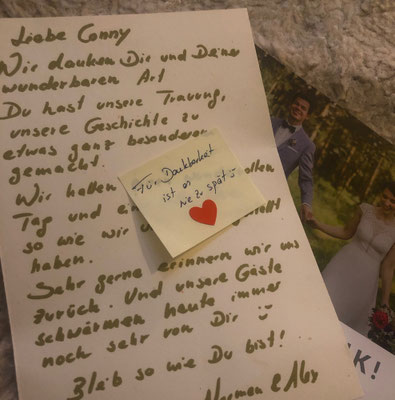 Liebe Conny
Wir danken Dir und Deiner
wunderbaren Art
Du hast unsere Trauung,
unsere Geschichte zu
etwas ganz besonderem
gemacht.
Wir hatten
Tag und
so wie wir
haben.
Sehr gerne erinnern wir uns
zurück. Und unsere Gäste
schwärmen heute immer
noch sehr von Dir
Bleib so wie Du bist!
Für Dankbarkeit
ist es
nie zu spät
K!